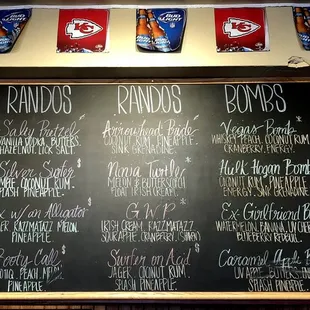 BUD LIGHT
KC
BUD LIGHT
KC
RANDOS
RANDOS
BOMBS
Salty Pretzel
VANILLA VODKA, BUTTERS,
HAZELNUT, LCR, SALT
Silver Surfer
COCONUT RUM
SPLASH PINEAPPLE
Sex w/ an Alligator
JAGER, RAZZMATAZZ, MELON,
PINEAPPLE
Booty Call
PEACH, M
PINEAPPLE
Arrowhead Pride
COCONUT RUM, PINEAPPLE,
Ninja Turtle
MELON & BUTTERSCOTCH
PINEAPPLE
G.W.P
IRISH CREAM, RAZZMATAZZ
SOUR APPLE, CRANBERRY
Surfer on Acid
JAGER, COCONUT RUM,
SPLASH PINEAPPLE
Vegas Bomb
WHISKEY, PEACH, COCONUT RUM,
CRANBERRY, ENERGY
Hulk Hogan Bomb
COCONUT RUM, PINEAPPLE
ENERGY,
Ex-Girlfriend B
WATERMELON, BANANA, UV CHER
BLUEBERRY REDBULL
Caramel Apple B
UV APPLE, BUTTERS,
SPLASH PINEAPPLE